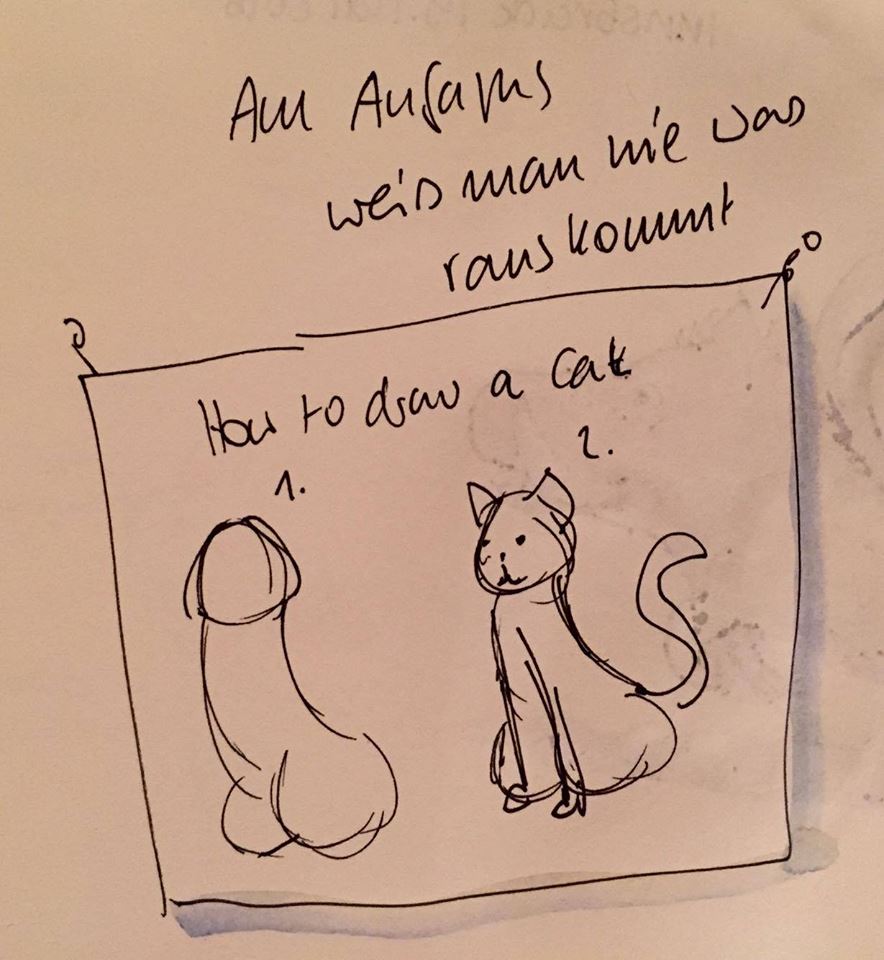 Am Anfang
weis man nie was
raus kommt
How to draw a Cat
1.
2.